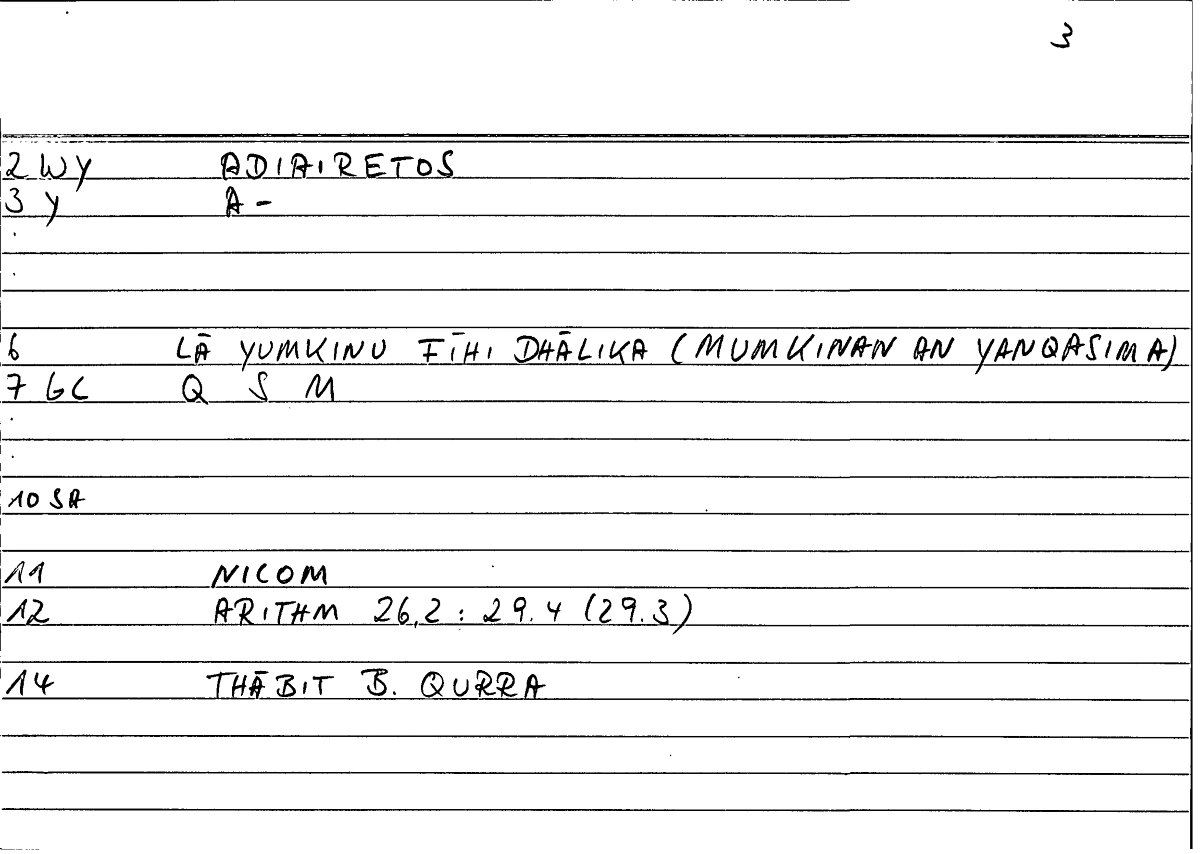 3
2 WY ADIAIRETOS
3 Y A -
6 LĀ YUMKINU FĪHI DHĀLIKA (MUMKINAN AN YANQASIMA)
7 GC Q S M
10 SA
11 NICOM
12 ARITHM 26,2 : 29.4 (29.3)
14 THĀBIT B. QURRA